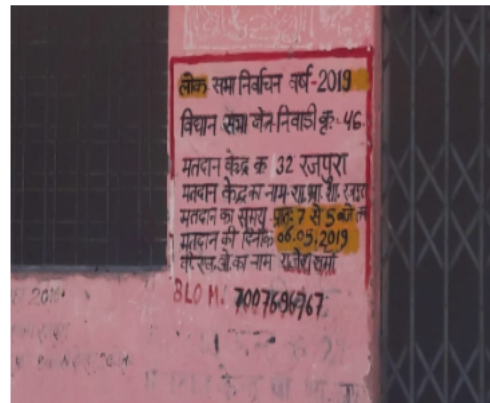 लोक सभा निर्वाचन वर्ष-2019
विधान सभा क्षेत्र-निवाडी क्र.-46
मतदान केंद्र क्र 32 रजपुरा
मतदान केंद्र का नाम-शा.प्रा.शा. रजपुरा
मतदान का समय-प्रातः 7 से 5 बजे तक
मतदान की दिनांक 06.05.2019
बी.एल.ओ.का नाम राजेश शर्मा
BLO M. 7007696967